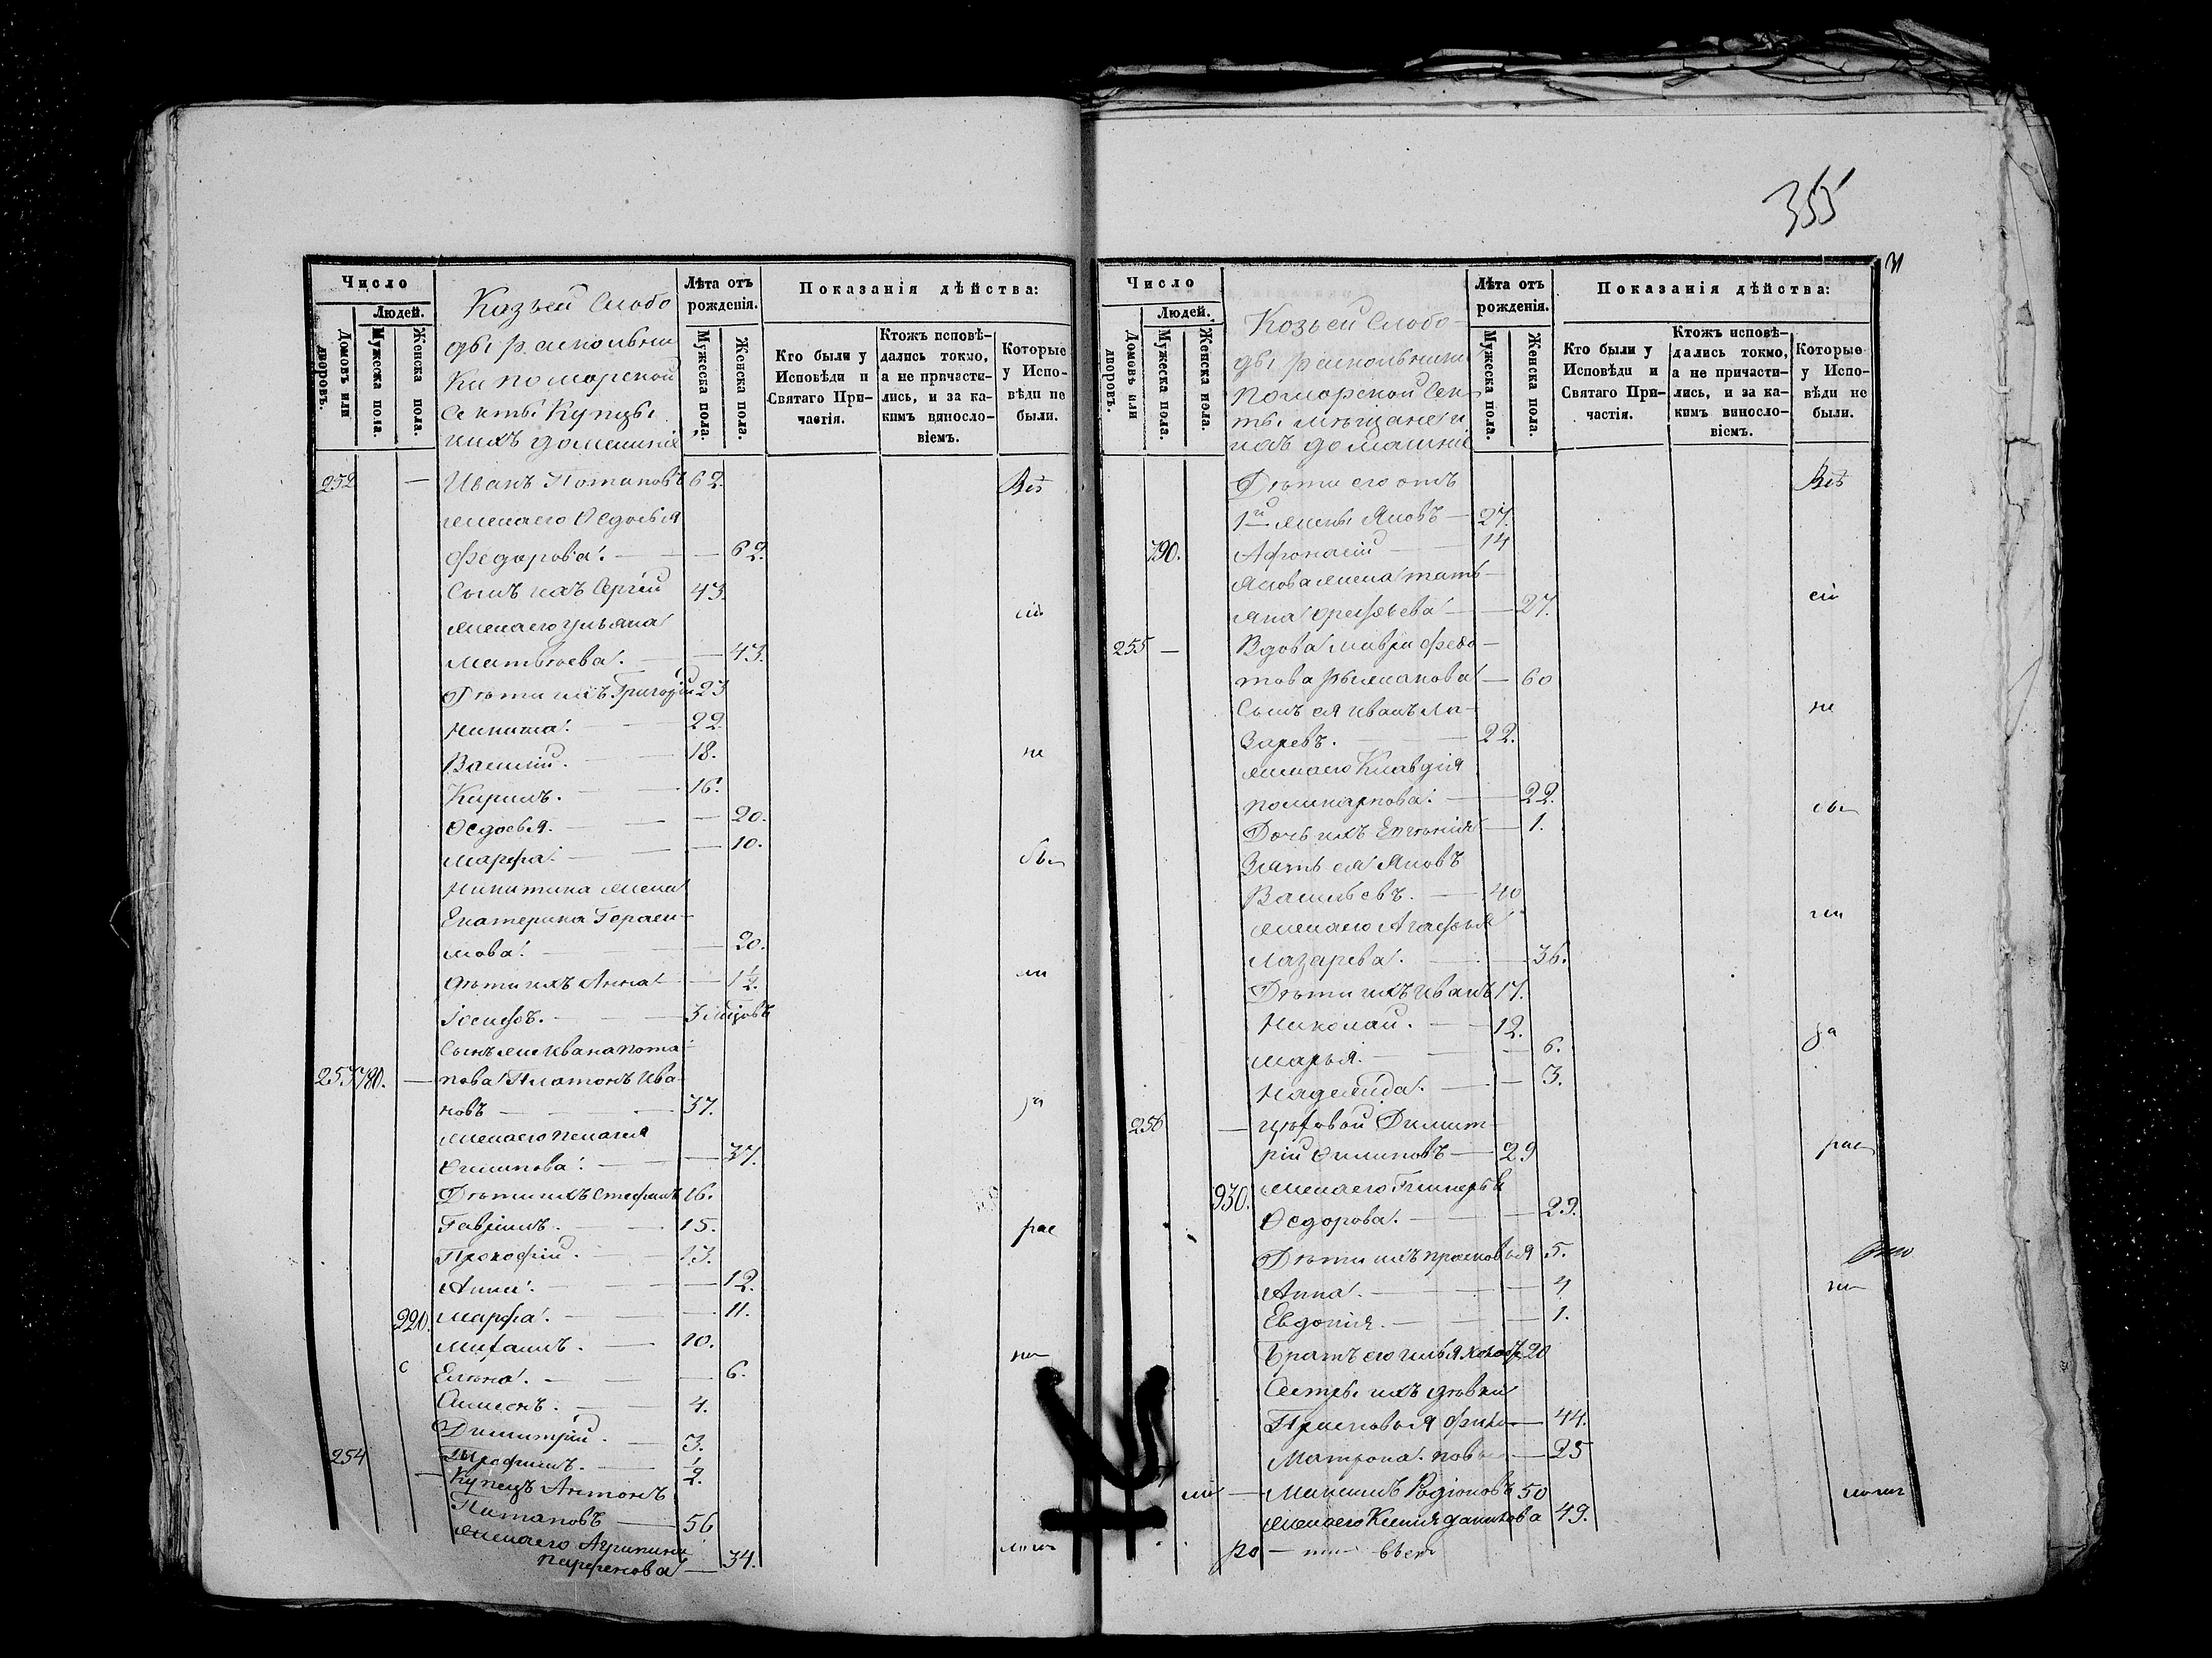 355
31
Число
Людей.
Домовъ или дворовъ.
Мужеска пола.
Женска пола.
Козьей Слобо
ды раскольни
ки поморской
секты Купцы
и ихъ домашніе
Лѣта отъ рожденія.
Мужеска пола.
Женска пола.
Показанія дѣйства:
Кто были у Исповѣди и Святаго Причастія.
Ктожъ исповѣдались токмо, а не причастились, и за какимъ винословіемъ.
Которые у Исповѣди не были.
252 — Иванъ Потаповъ 62. Всѣ
жена его Ѳедосья
Федорова. — — 62.
Сынъ ихъ Сергій 43. сіи
жена его Ульяна
Матвѣева. — — 43.
Дѣти ихъ Григорій 23
Никита. — 22.
Василій. — 18. не
Кирилъ. — 16.
Ѳедосья. — — 20.
Марфа. — — 10. бы
Никитина жена
Екатерина Гераси-
мова. — — 20.
Дѣти ихъ Анна — 1½. ли
Іосифъ. — 3 мѣсяцовъ
Сынъ же Ивана Пота-
253 780. — пова Платонъ Ива-
новъ — — 37. за
жена его Пелагея
Филипова. — — 37.
Дѣти ихъ Стефанъ 16.
Гаврилъ. — 15. рас
Прокофій. — 13.
Анна. — — 12.
920. Марфа. — — 11.
Михаилъ. — 10. ко
Елена. — — 6.
Симеонъ. — 4.
Димитрій. — 3.
Трофимъ. — ½.
254 — Купецъ Антонъ
Потаповъ — 56
жена его Агрипина
Парфенова — 34.
Число
Людей.
Домовъ или дворовъ.
Мужеска пола.
Женска пола.
Козьей Слобо-
ды раскольники
поморской сек-
ты мѣщане и
ихъ домашніе
Лѣта отъ рожденія.
Мужеска пола.
Женска пола.
Показанія дѣйства:
Кто были у Исповѣди и Святаго Причастія.
Ктожъ исповѣдались токмо, а не причастились, и за какимъ винословіемъ.
Которые у Исповѣди не были.
Дѣти его отъ Всѣ
1й жены Яковъ — 27.
790. Афонасій — 14
Яковa жена Тать-
яна Арефьева — — 27. сіи
255 — Вдова Мавра Федо-
това — 60
Сынъ ея Иванъ Ла- не
заревъ. — 22.
жена его Клавдія
Поликарпова. — — 22. бы
Дочь ихъ Евгенія — 1.
Зять ея Яковъ
Васильевъ. — 40
жена его Агафья ли
Лазарева. — — 36.
Дѣти ихъ Иванъ 17.
Николай. — 12. за
Марья. — — 6.
Надежда. — — 3.
256 — Цеховой Димит-
рій Филиповъ — 29 рас
930. жена его Гликерья
Ѳедорова. — — 29.
Дѣти ихъ Прасковья 5.
Анна. — — 4
Евдокия. — — 1.
Братъ его Илья 20
Сестры ихъ дѣвки
Прасковья — 44.
Матрона — 25
— Максимъ Родіоновъ 50
жена его Ксенія Данилова 49.